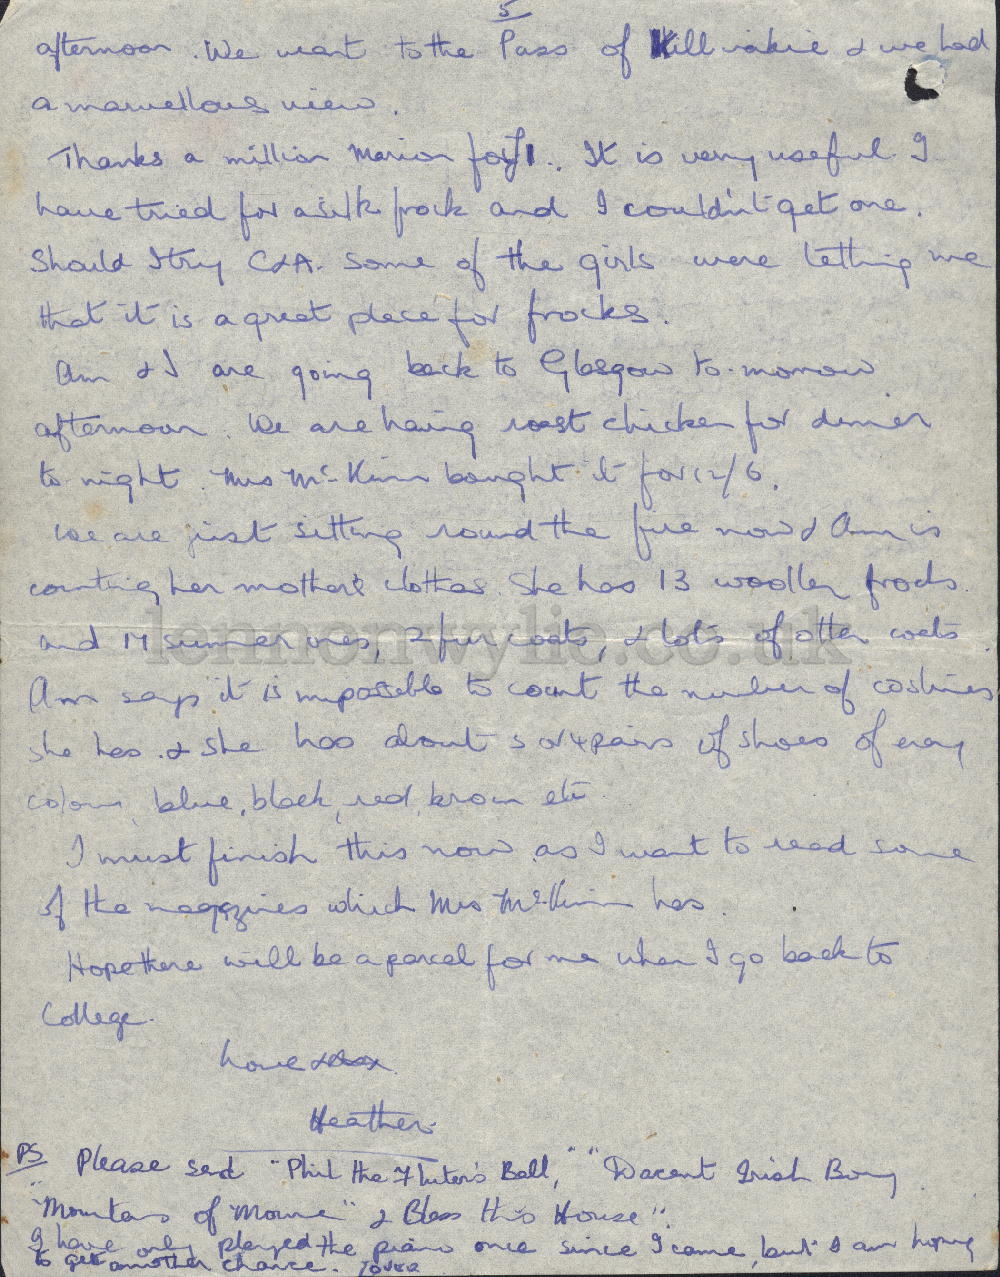 5
afternoon. We went to the Pass of Killinakie & we had
a marvellous view.
Thanks a million Marion for It is very useful. I
have tried for a silk frock and I couldn't get one.
Should I try C&A. Some of the girls were telling me
that it is a great place for frocks.
Ann & I are going back to Glasgow to-morrow
afternoon. We are having roast chicken for dinner
to night. Mrs McKinn bought it for 12/6.
We are just sitting round the fire now & Ann is
counting her mother's clothes. She has 13 woollen frocks
and 17 summer ones, 2 fur coats, & lots of other coats.
Ann says it is impossible to count the number of costumes
she has. & she has about 3 or 4 pairs of shoes of every
colour, blue, black, red, brown etc
I must finish this now as I want to read some
of the magazines which Mrs McKinn has.
Hope there will be a parcel for me when I go back to
College.
Love
Heather.
PS Please send "Phil the Fluter's Ball," "Dacent Irish Boy
"Mountains of Mourne" & Bless this House".
I have only played the piano once since I came, but I am hoping
to get another chance. TOVER
lennonwylie.co.uk